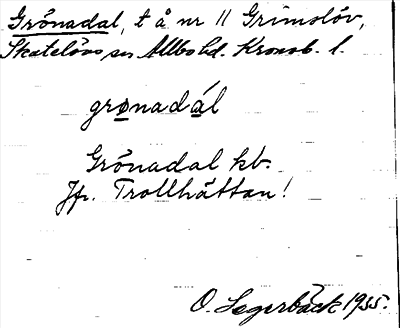 Grönadal, t å nr 11 Grimslöv,
Skatelövs sn Allbo hd. Kronob. l.
grønadál
Grönadal kb.
Jfr. Trollhättan!
O. Segerbäck 1935.